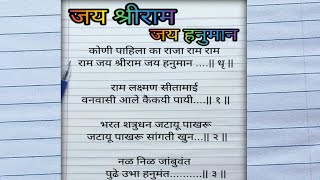 जय श्रीराम
जय हनुमान
कोणी पाहिला का राजा राम राम
राम जय श्रीराम जय हनुमान ....॥ धृ ॥
राम लक्ष्मण सीतामाई
वनवासी आले कैकयी पायी....॥ १ ॥
भरत शत्रुधन जटायू पाखरू
जटायू पाखरू सांगती खुन...॥ २ ॥
नळ निळ जांबुवंत
पुढे उभा हनुमंत..........॥ ३ ॥